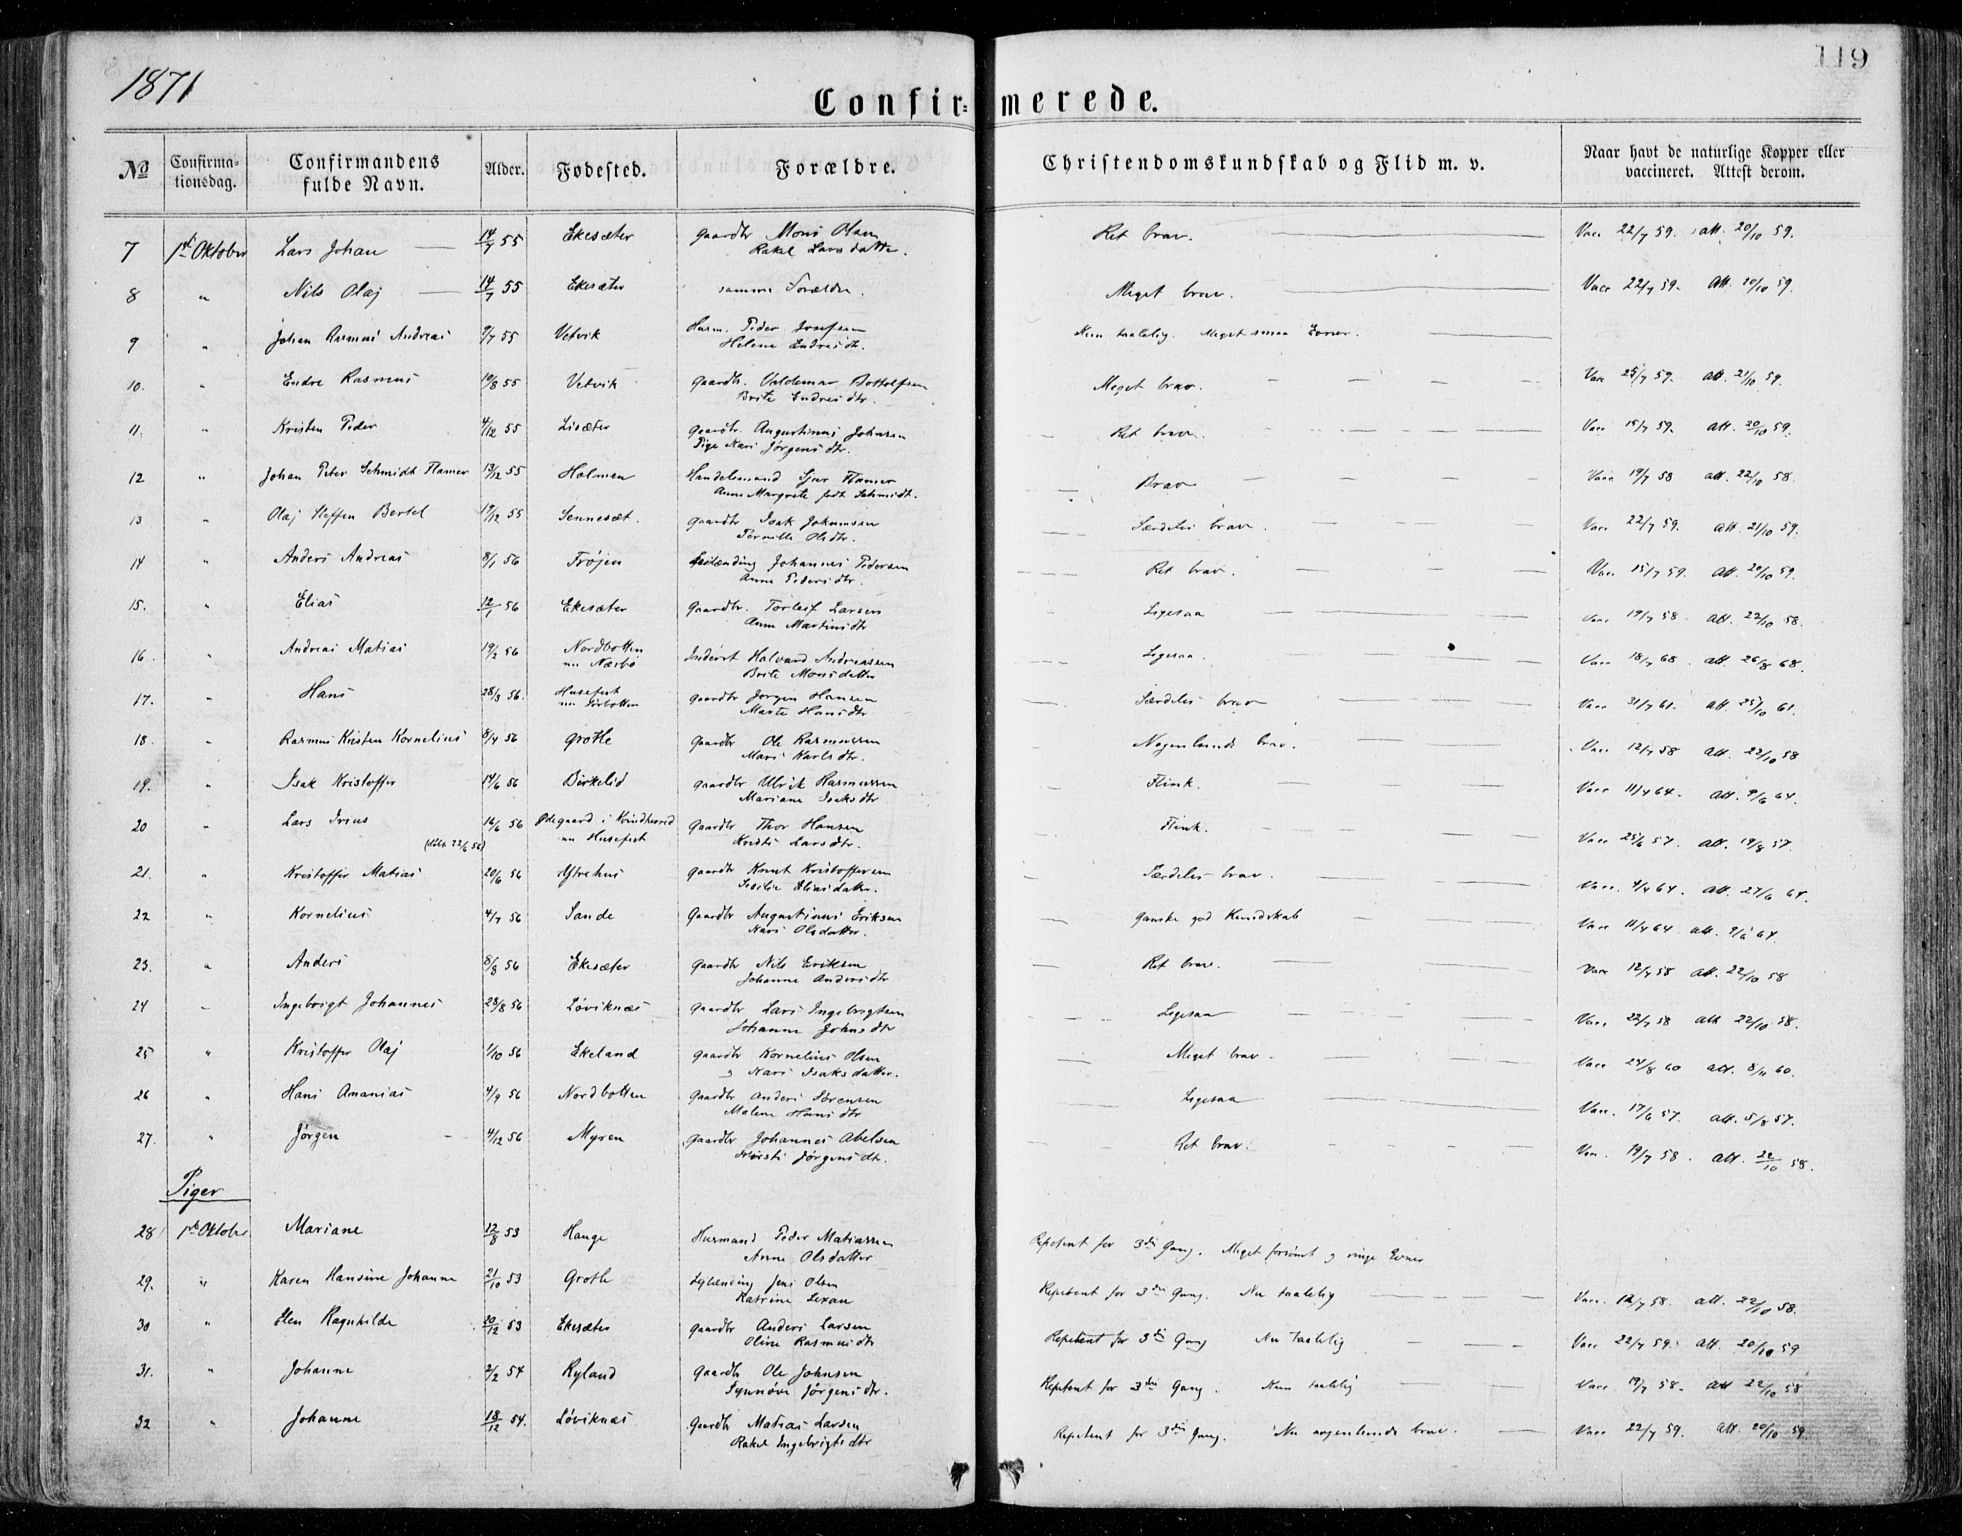 1871
119
Confir=merede.
No Confirmationsdag. Confirmandens fulde Navn. Alder. Fødested. Forældre. Christendomskundskab og Flid m. v. Naar havt de naturlige Kopper eller vaccineret. Attest derom.
7 1ste Oktober Lars Johan 14/7 55 Ekesæter Gaardbr Mons Olsen Ret brav. Vacc 22/7 59. att. 20/10 59.
Rakel Larsdatter.
8 " Nils Olaj 14/7 55 Ekesæter samme Forældre. Meget brav. Vacc 22/7 59. Att. 20/10 59.
9 " Johan Rasmus Andreas 9/7 55 Vetvik Husm. Peder Josefsen Nem taalelig. Meget smaa Evner.
Helene Endresdtr.
10. " Endre Rasmus 10/8 55 Vetvik Gaardbr. Valdemar Bottolfsen Meget brav. Vacc 25/7 59. att. 21/10 59.
Brite Endresdtr.
11. " Kristen Peder 4/12 55 Lisæter Gaardbr. Augustinus Johnsen Ret brav. Vacc 15/7 59. att. 20/10 59.
Pige Kari Jørgensdtr.
12 " Johan Peter Schmidt Flamer 13/12 55 Holmen Handelsmand Sjur Flamer Brav Vacc 19/7 58 att. 22/10 58.
Anne Margrete født Schmidt.
13 " Olaj Steffen Bertel 19/12 55 Sennesæt. Gaardbr Isak Johannsen Særdeles brav. Vacc 22/7 59. att. 21/10 59.
Pernille Olsdtr.
14 " Anders Andreas 8/1 56 Frøjen Johannes Pedersen Ret brav. Vacc 15/7 59. att. 20/10 59.
Anne Pedersdtr.
15. " Elias 12/1 56 Ekesæter Gaardbr. Torleif Larsen Ligesaa Vacc 19/7 58 att. 22/10 58.
Anne Martinsdtr
16. " Andreas Matias 19/2 56 Nordbotten Inderst Halvard Andreassen Ligesaa. Vacc 18/7 68. att. 26/8 68.
nu Næsbø Brite Monsdatter
17. " Hans 28/3 56. Husefest Gaardbr Jørgen Hansen Særdeles brav Vacc 31/7 61. att. 25/10 61.
nu Sørbotten Marte Hansdtr
18. " Rasmus Kristen Kornelius 8/4 56 Grotle Gaardbr Ole Rasmussen Nogenlunde brav. Vacc 12/7 58 att. 22/10 58
Mari Karlsdtr.
19. " Isak Kristoffer 14/6 56 Birkelid Gaardbr Ulrik Rasmussen Flink. Vacc 11/4 64. att. 9/6 64.
Mariane Isaksdtr
20 " Lars Irius 16/6 56 Ødegaard i Kvindherred Gaardbr Thor Hansen Flink. Vacc 25/6 57. att. 19/8 57.
(døbt 22/6 56) nu Husefest Kristi Larsdtr.
21. " Kristoffer Matias 20/6 56 Ytrehus Gaardbr Knut Kristoffersen Særdeles brav. Vacc. 4/4 64. att. 27/6 64.
Sesilie Eliasdatter.
22 " Kornelius 4/7 56 Sande Gaardbr Augustinus Eriksen Ganske god Kundskab Vacc 11/4 64 att. 9/6 64.
Kari Olsdatter.
23. " Anders 8/8 56 Ekesæter Gaardbr Nils Eriksen Ret brav. Vacc 12/7 58 att. 22/10 58
Johanne Andersdtr
24 " Ingebrigt Johannes 28/8 56 Løviknæs Gaardbr Lars Ingebrigtsen Ligesaa Vacc 22/7 58 att 22/10 58.
Johanne Johnsdtr
25 " Kristoffer Olaj 1/10 56 Ekeland Gaardbr Kornelius Olsen Meget brav. Vacc 24/8 60 att. 8/11 60.
og Kari Isaksdatter.
26 " Hans Ananias 4/9 56 Nordbotten Gaardbr Anders Sørensen Ligesaa Vacc. 17/6 57. att. 5/8 57.
Malene Hansdtr
27. " Jørgen 4/12 56 Myren Gaardbr Johannes Abelsen Ret brav. Vacc. 19/7 58. att. 22/10 58.
Kirsti Jørgensdtr.
Piger
28 1ste Oktober Mariane 12/8 53 Hauge Husmand Peder Matiassen Repetent for 3die Gang. Meget forsømt og ringe Evner
Anne Olsdatter
29. " Karen Hansine Johanne 21/10 53 Grotle Jens Olsen Repetent for 3die Gang. Nu taalelig Vacc. 12/7 58. att. 22/10 58.
Katrine Lexau
30 " Elen Ragnhilde 20/12 53 Ekesæter Gaardbr Anders Larsen Repetent for 3die Gang Nu taalelig Vacc 22/7 59. att. 20/10 59
Oline Rasmusdtr
31. " Johanne 2/2 54 Ryland Gaardbr Ole Johnsen Repetent for 3die Gang. Nem taalelig Vacc 19/7 58. att 22/10 58
Synnøve Jørgensdtr.
32 " Johanne 18/12 54. Løviknæs Gaardbr Matias Larsen Repetent for 3die Gang. Nu nogenlunde brav. Vacc 22/7 59. att. 20/10 59.
Rakel Ingebrigtsdtr